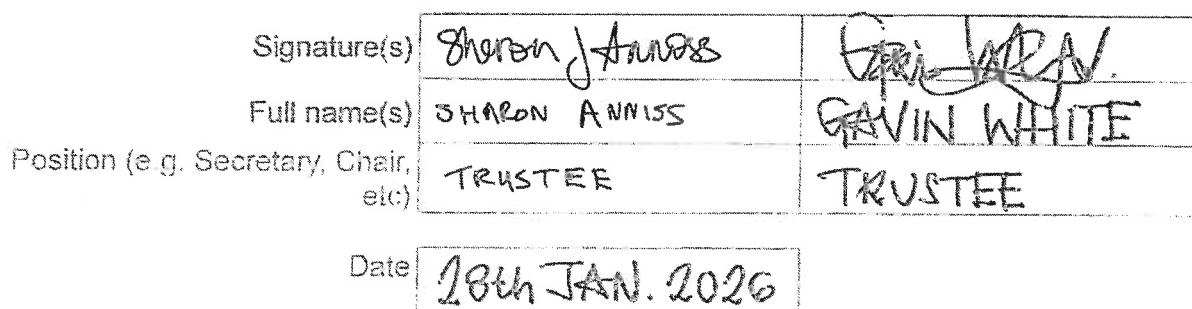 Signature(s) Sharon J Anniss
Full name(s) SHARON ANNISS GAVIN WHITE
Position (e.g. Secretary, Chair, etc) TRUSTEE TRUSTEE
Date 28th JAN. 2026